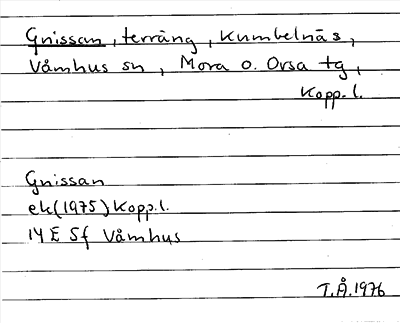 Gnissan, terräng, Kumbelnäs,
Våmhus sn, Mora o. Orsa tg,
Kopp. l.
Gnissan
ek (1975) Kopp. l.
14 E 5f Våmhus
T.Å. 1976